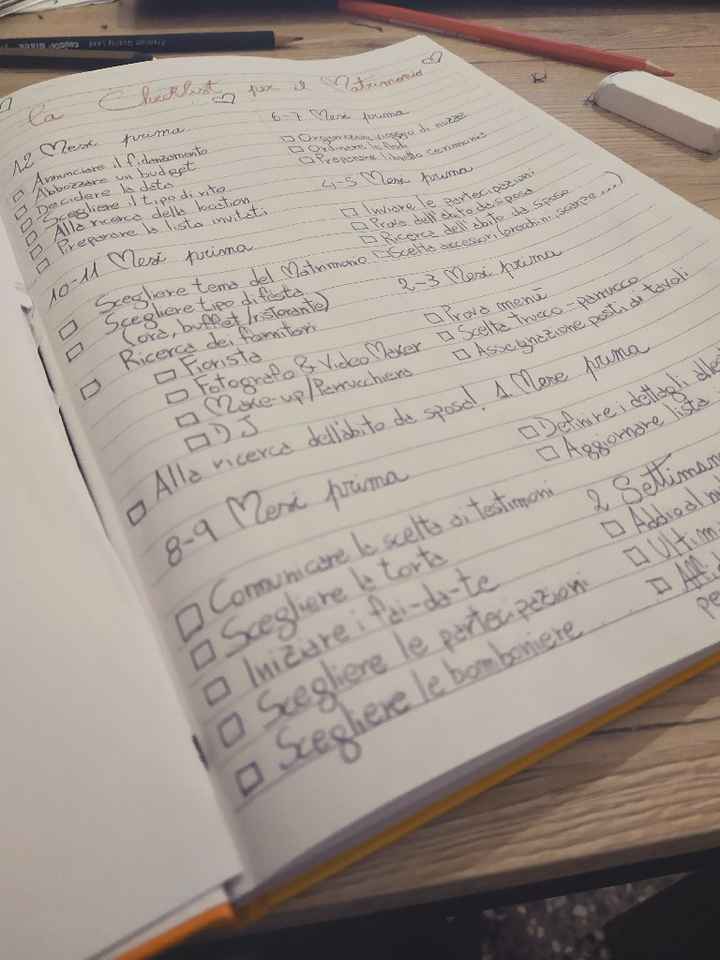 La Checklist per il Matrimonio
12 Mesi prima
Annunciare il fidanzamento
Abbozzare un budget
Decidere la data
Scegliere il tipo di rito
Alla ricerca della location
Preparare la lista invitati
10-11 Mesi prima
Scegliere tema del Matrimonio
Scegliere tipo di festa
(ora, buffet/ristorante)
Ricerca dei fornitori
Fiorista
Fotografo & Video Maker
Make-up/Parrucchiera
DJ
Alla ricerca dell'abito da sposa!
8-9 Mesi prima
Comunicare la scelta ai testimoni
Scegliere la torta
Iniziare i fai-da-te
Scegliere le partecipazioni
Scegliere le bomboniere
6-7 Mesi prima
Organizzare viaggio di nozze
Ordinare le fedi
Preparare libretto cerimonia
4-5 Mesi prima
Inviare le partecipazioni
Prova dell'abito da sposa
Ricerca dell'abito da sposo
Scelta accessori (orecchini, scarpe...)
2-3 Mesi prima
Prova menù
Scelta trucco-parrucco
Assegnazione posti ai tavoli
1 Mese prima
Definire i dettagli
Aggiornare lista
2